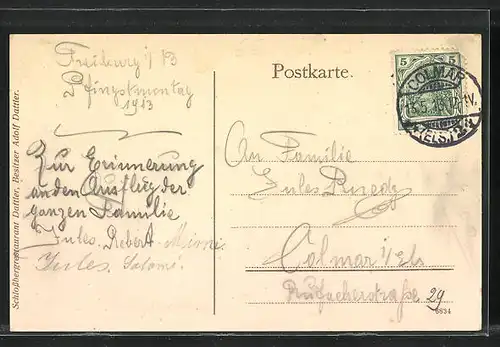 Freiburg i/B
Pfingstmontag
1913
Zur Erinnerung
an den Ausflug der
ganzen Familie
Jules, Robert Mimi
Jules, Salomé
Schloßbergrestaurant Dattler, Besitzer Adolf Dattler.
Postkarte.
5 5
COLMAR
(ELS.)
An Familie
Jules
Colmar i/Els
Rufacherstraße 29
6834